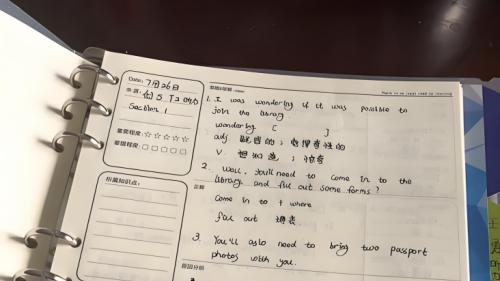 Date: 7月26日
剑5 T3
Section 1
重要程度: ☆☆☆☆☆
掌握程度: □□□□□
所属知识点:
1. I was wondering if it was possible to
join the library
wondering [ ]
adj
v. 想知道 ; 惊奇
2. Well, you'll need to come in to the
library and fill out some forms?
正解
come in to + where
fill out 填表
3. You'll aslo need to bring two passport
photos with you.
原因分析